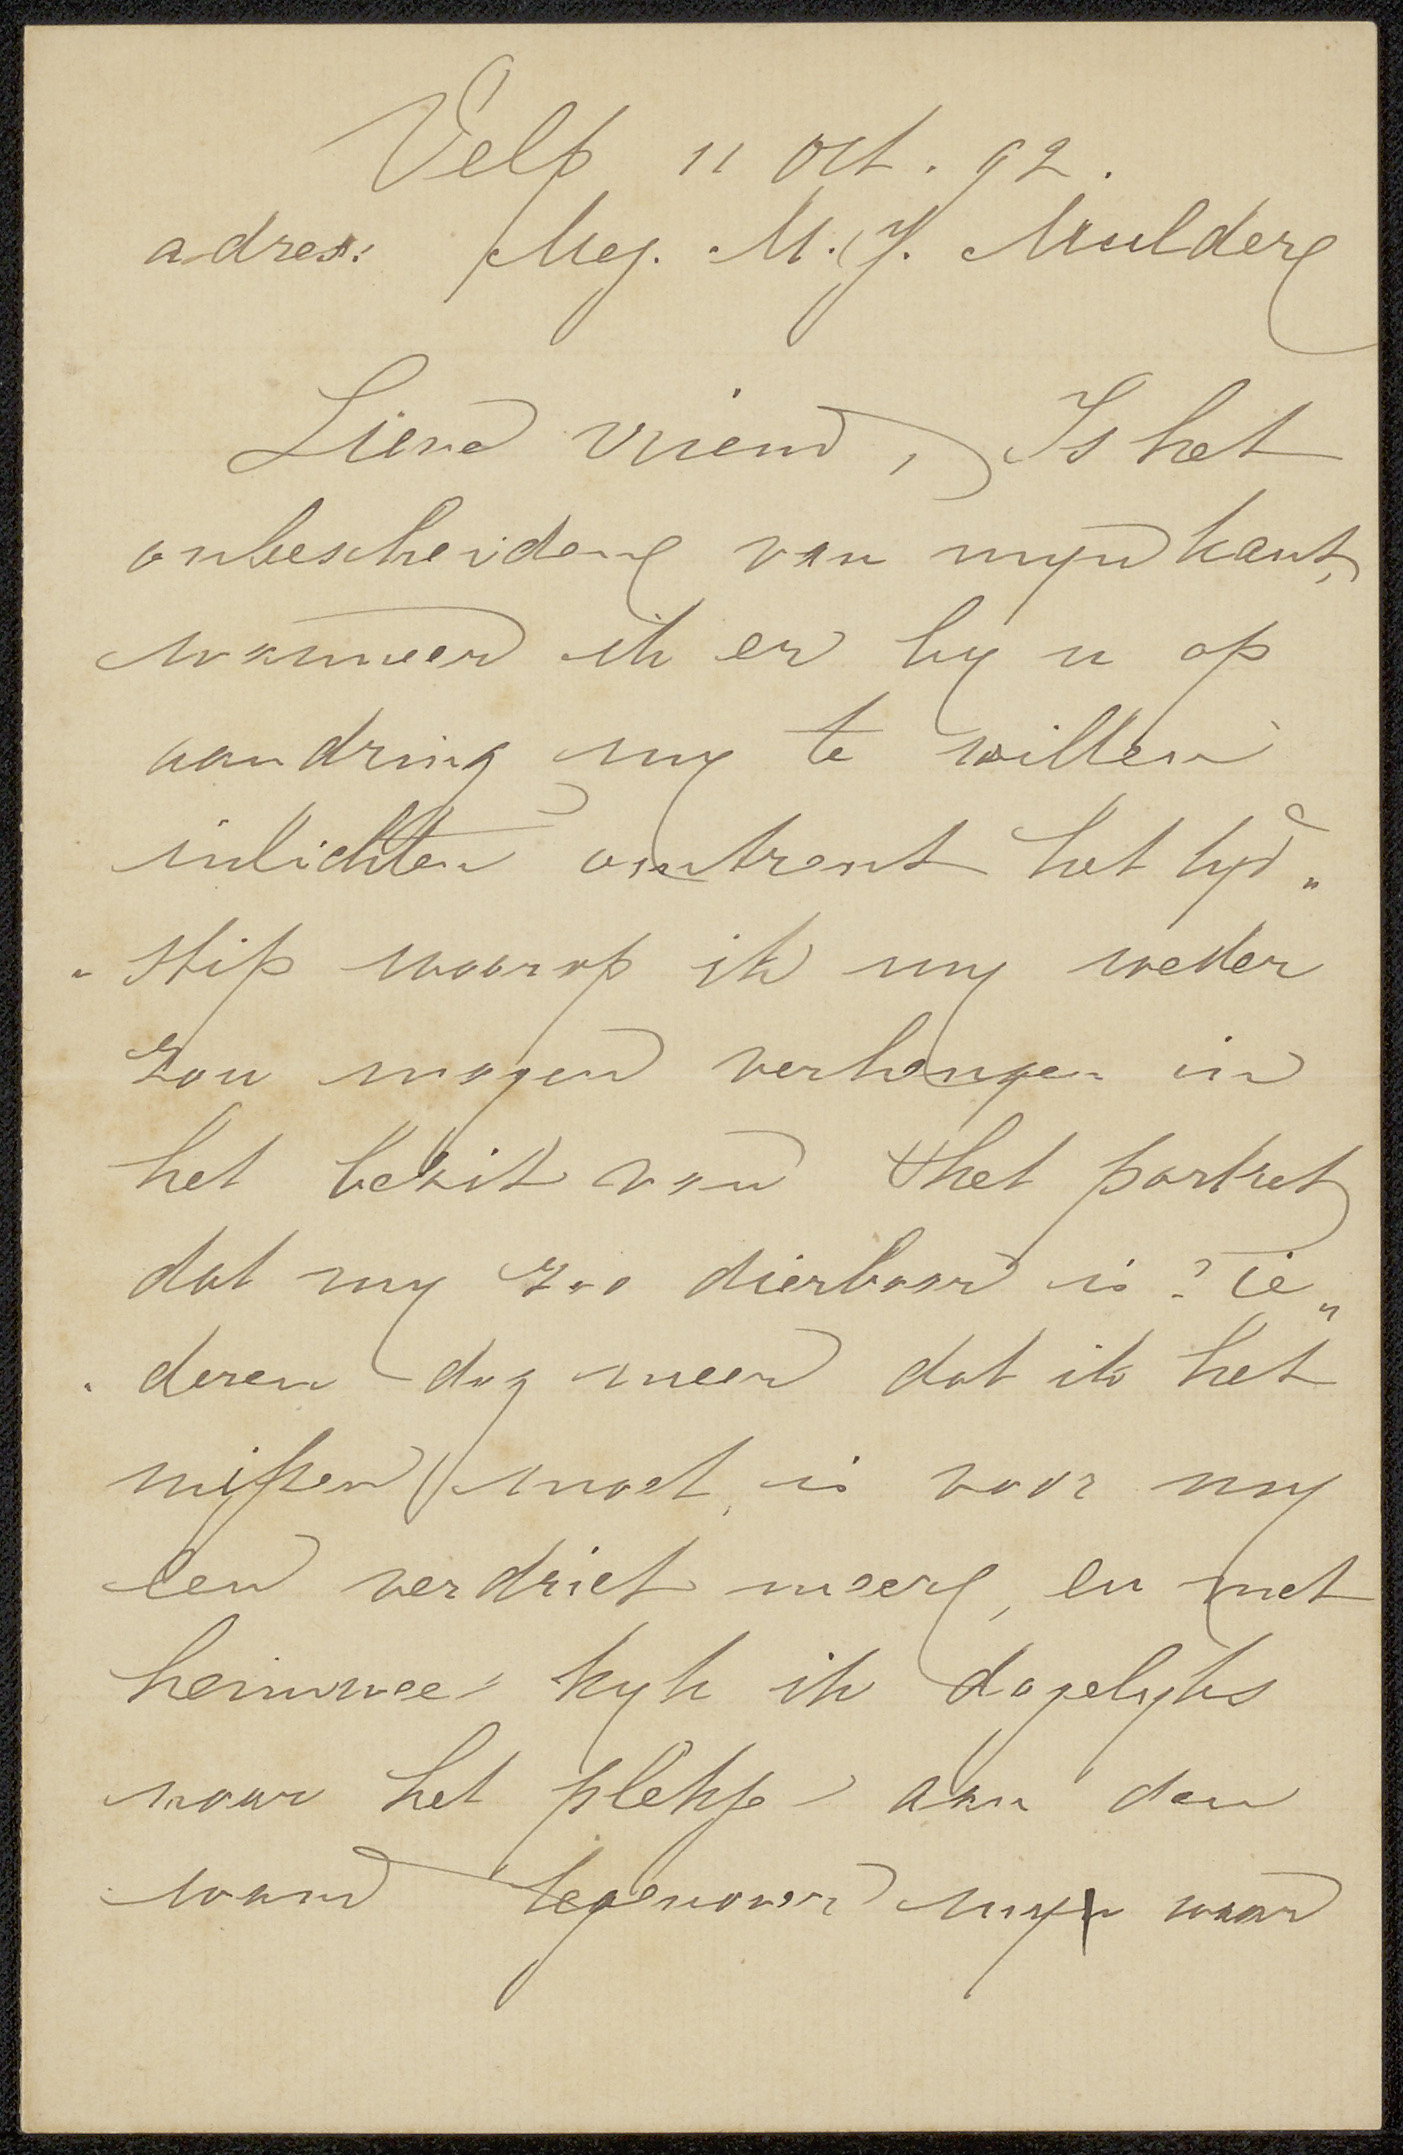 Velp 11 Oct. 92.
adres: Mej. M. J. Mulder
Lieve vriend, Is het
onbescheiden van myn kant,
wanneer ik er by u op
aandring my te willen
inlichten omtrent het tyd„
„stip waarop ik my weder
zou mogen verheugen in
het bezit van het portret
dat my zoo dierbaar is? ie„
„deren dag meer dat ik het
missen moet, is voor my
een verdriet meer, en met
heimwee kyk ik dagelyks
naar het plekje aan den
wand tegenover my waar